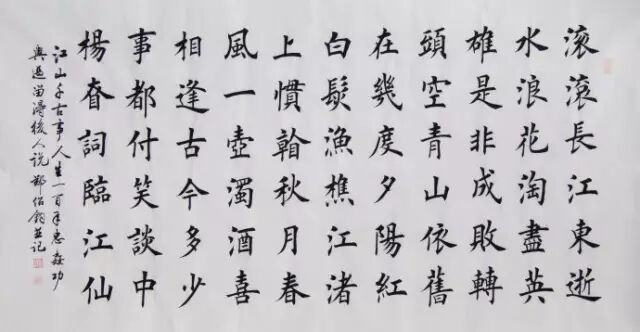 滚滚長江東逝
水浪花淘盡英
雄是非成敗轉
頭空青山依舊
在幾度夕陽紅
白髮漁樵江渚
上慣看秋月春
風一壺濁酒喜
相逢古今多少
事都付笑談中
楊昚詞臨江仙
江山千古事人生一百年忠姦功
與過留得後人说鄭紹並记